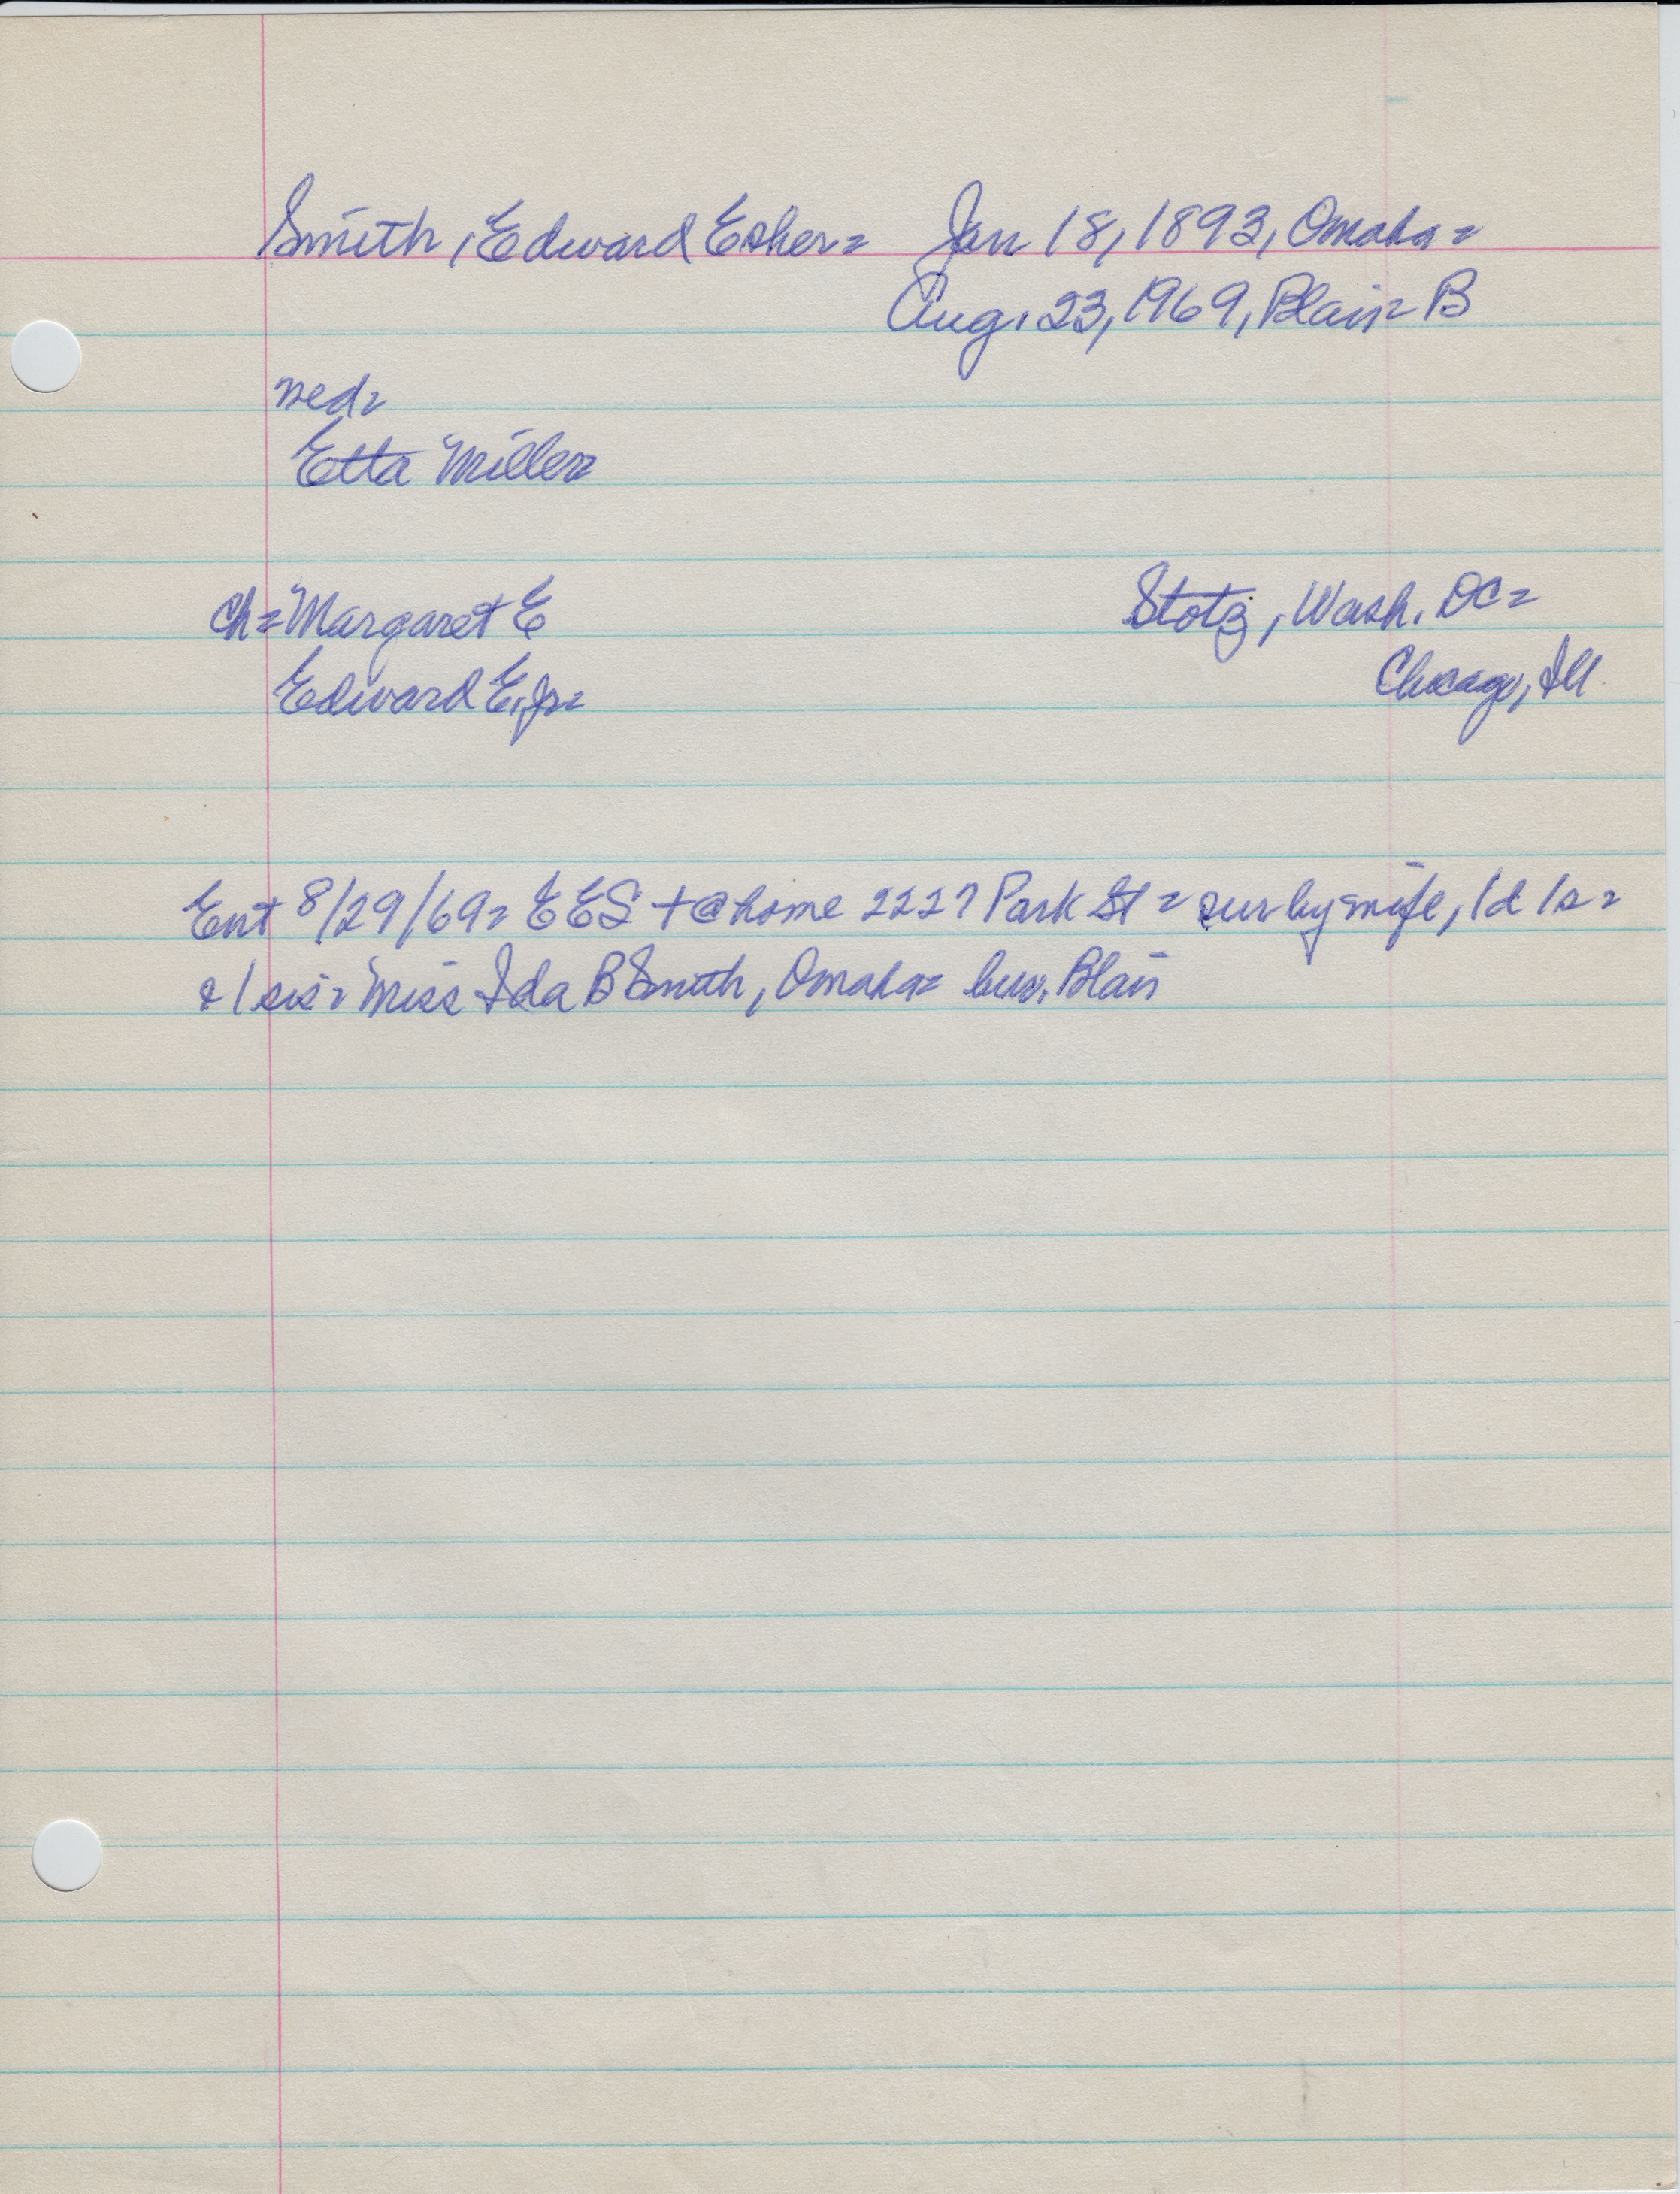 Smith, Edward Esher= Jan 18, 1893, Omaha=
Aug. 23, 1969, Blair= B
med=
Etta Miller=
Ch= Margaret E Stotz, Wash. DC=
Edward E. Jr= Chicago, Ill.
Ent 8/29/69= EES + @ home 2227 Park St = sur by wife, 1d 1s =
& 1 sis= Miss Ida B Smith, Omaha= bur. Blair